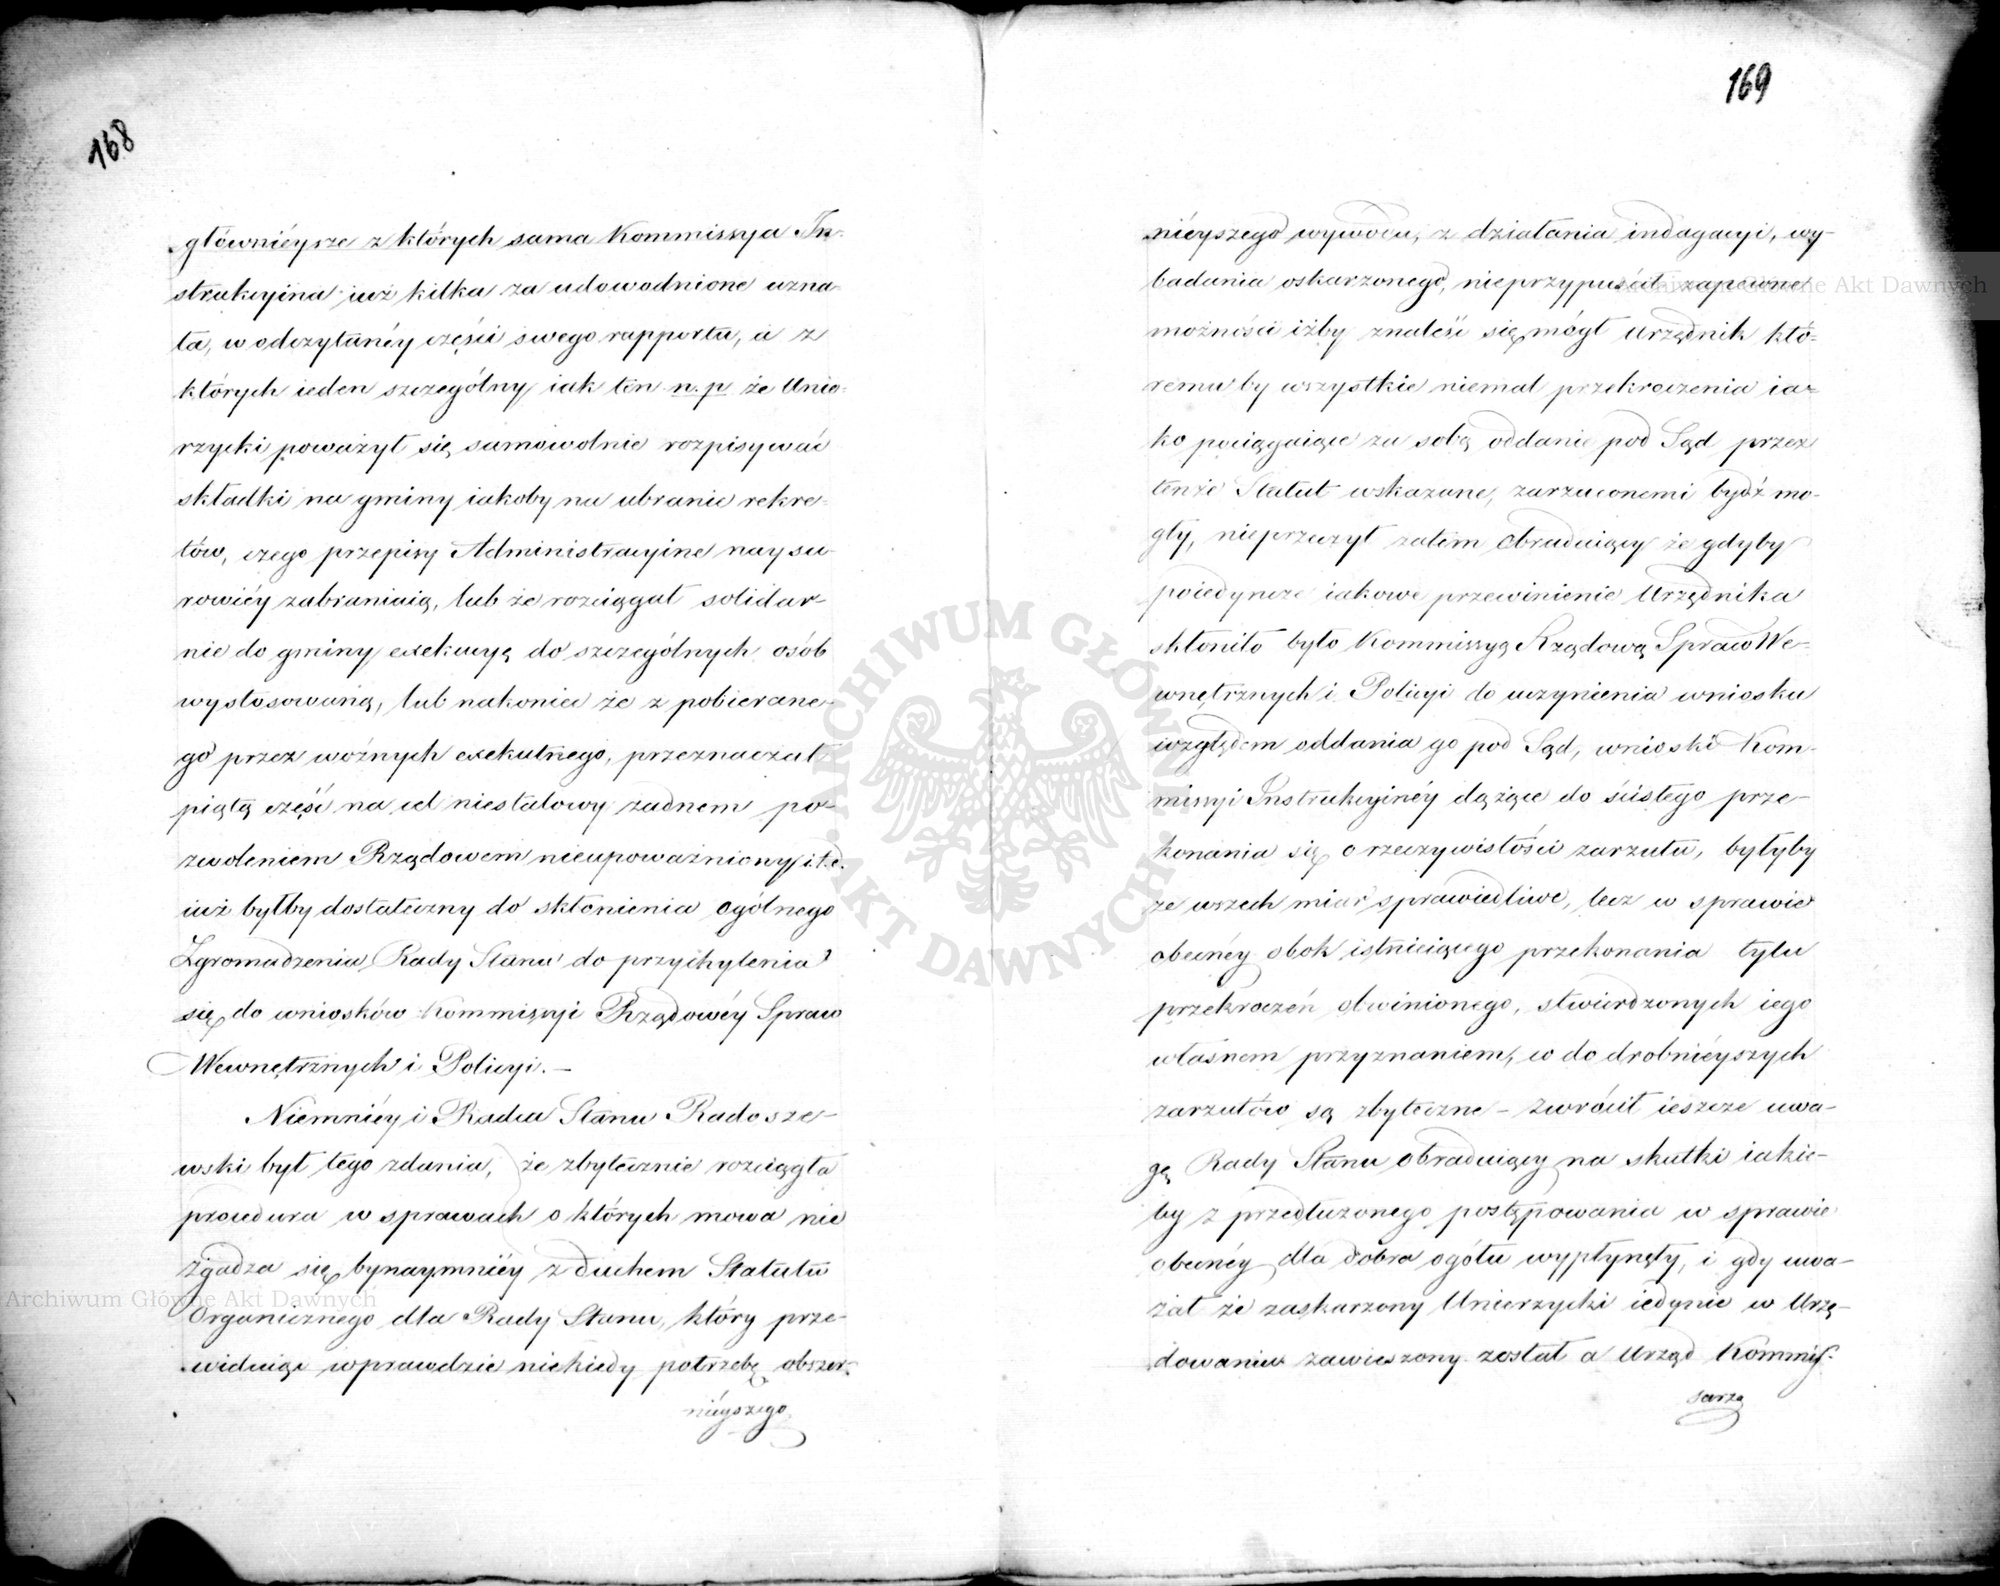 168
główniéysze z których sama Kommissya In-
strukcyina już kilka za udowodnione uzna-
ła, w odczytanéy części swego rapportu, a z
których ieden szczególny iak ten n.p że Unie-
rzycki poważył się samowolnie rozpisywać
składki na gminy iakoby na ubranie rekru-
tów, czego przepisy Administracyine naysu-
rowiéy zabraniaią, lub że rozciągał solidar-
nie do gminy exekucyą do szczególnych osób
wystosowaną, lub nakoniec że z pobierane-
go przez woźnych exekutnego, przeznaczał
piątą część na cel niestałowy żadnem po-
zwoleniem Rządowem nieupoważniony i.t.d.
iuż byłby dostateczny do skłonienia ogólnego
Zgromadzenia Rady Stanu do przychylenia
się do wniosków Kommissyi Rządowéy Spraw
Wewnętrznych i Policyi. –
Niemniéy i Radca Stanu Radosze-
wski był tego zdania, że zbytecznie rozciągła
procedura w sprawach o których mowa nie
zgadza się bynaymniéy z duchem Statutu
Organicznego dla Rady Stanu, który prze-
widuiąc wprawdzie niekiedy potrzebę obszer-
niéyszego
169
niéyszego wywodu, z działania indagacyi, wy-
badania oskarzonego, nieprzypuścił zapewne
możności iżby znaleść się mógł Urzędnik któ-
remu by wszystkie niemal przekroczenia ia-
ko pociągaiące za sobą oddanie pod Sąd przez
tenże Statut wskazane, zarzuconemi bydź mo-
gły, nieprzeczył zatem obraduiący że gdyby
poiedyncze iakowe przewinienie Urzędnika
skłoniło było Kommissyą Rządową Spraw We-
wnętrznych i Policyi do uczynienia wniosku
względem oddania go pod Sąd, wnioski Kom-
missyi Instrukcyinéy dążące do ścisłego prze-
konania się o rzeczywistości zarzutu, byłyby
ze wszech miar sprawiedliwe, lecz w sprawie
obecnéy obok istnieiącego przekonania tylu
przekroczeń obwinionego, stwierdzonych iego
własnem przyznaniem, w do drobniéyszych
zarzutów są zbyteczne – Zwrócił ieszcze uwa-
gę Rady Stanu obraduiący na skutki iakie-
by z przedłużonego postępowania w sprawie
obecnéy dla dobra ogółu wypłynęły, i gdy uwa-
żał że zaskarzony Unierzycki iedynie w Urzę-
dowaniu zawieszony został a Urząd Kommis-
sarza